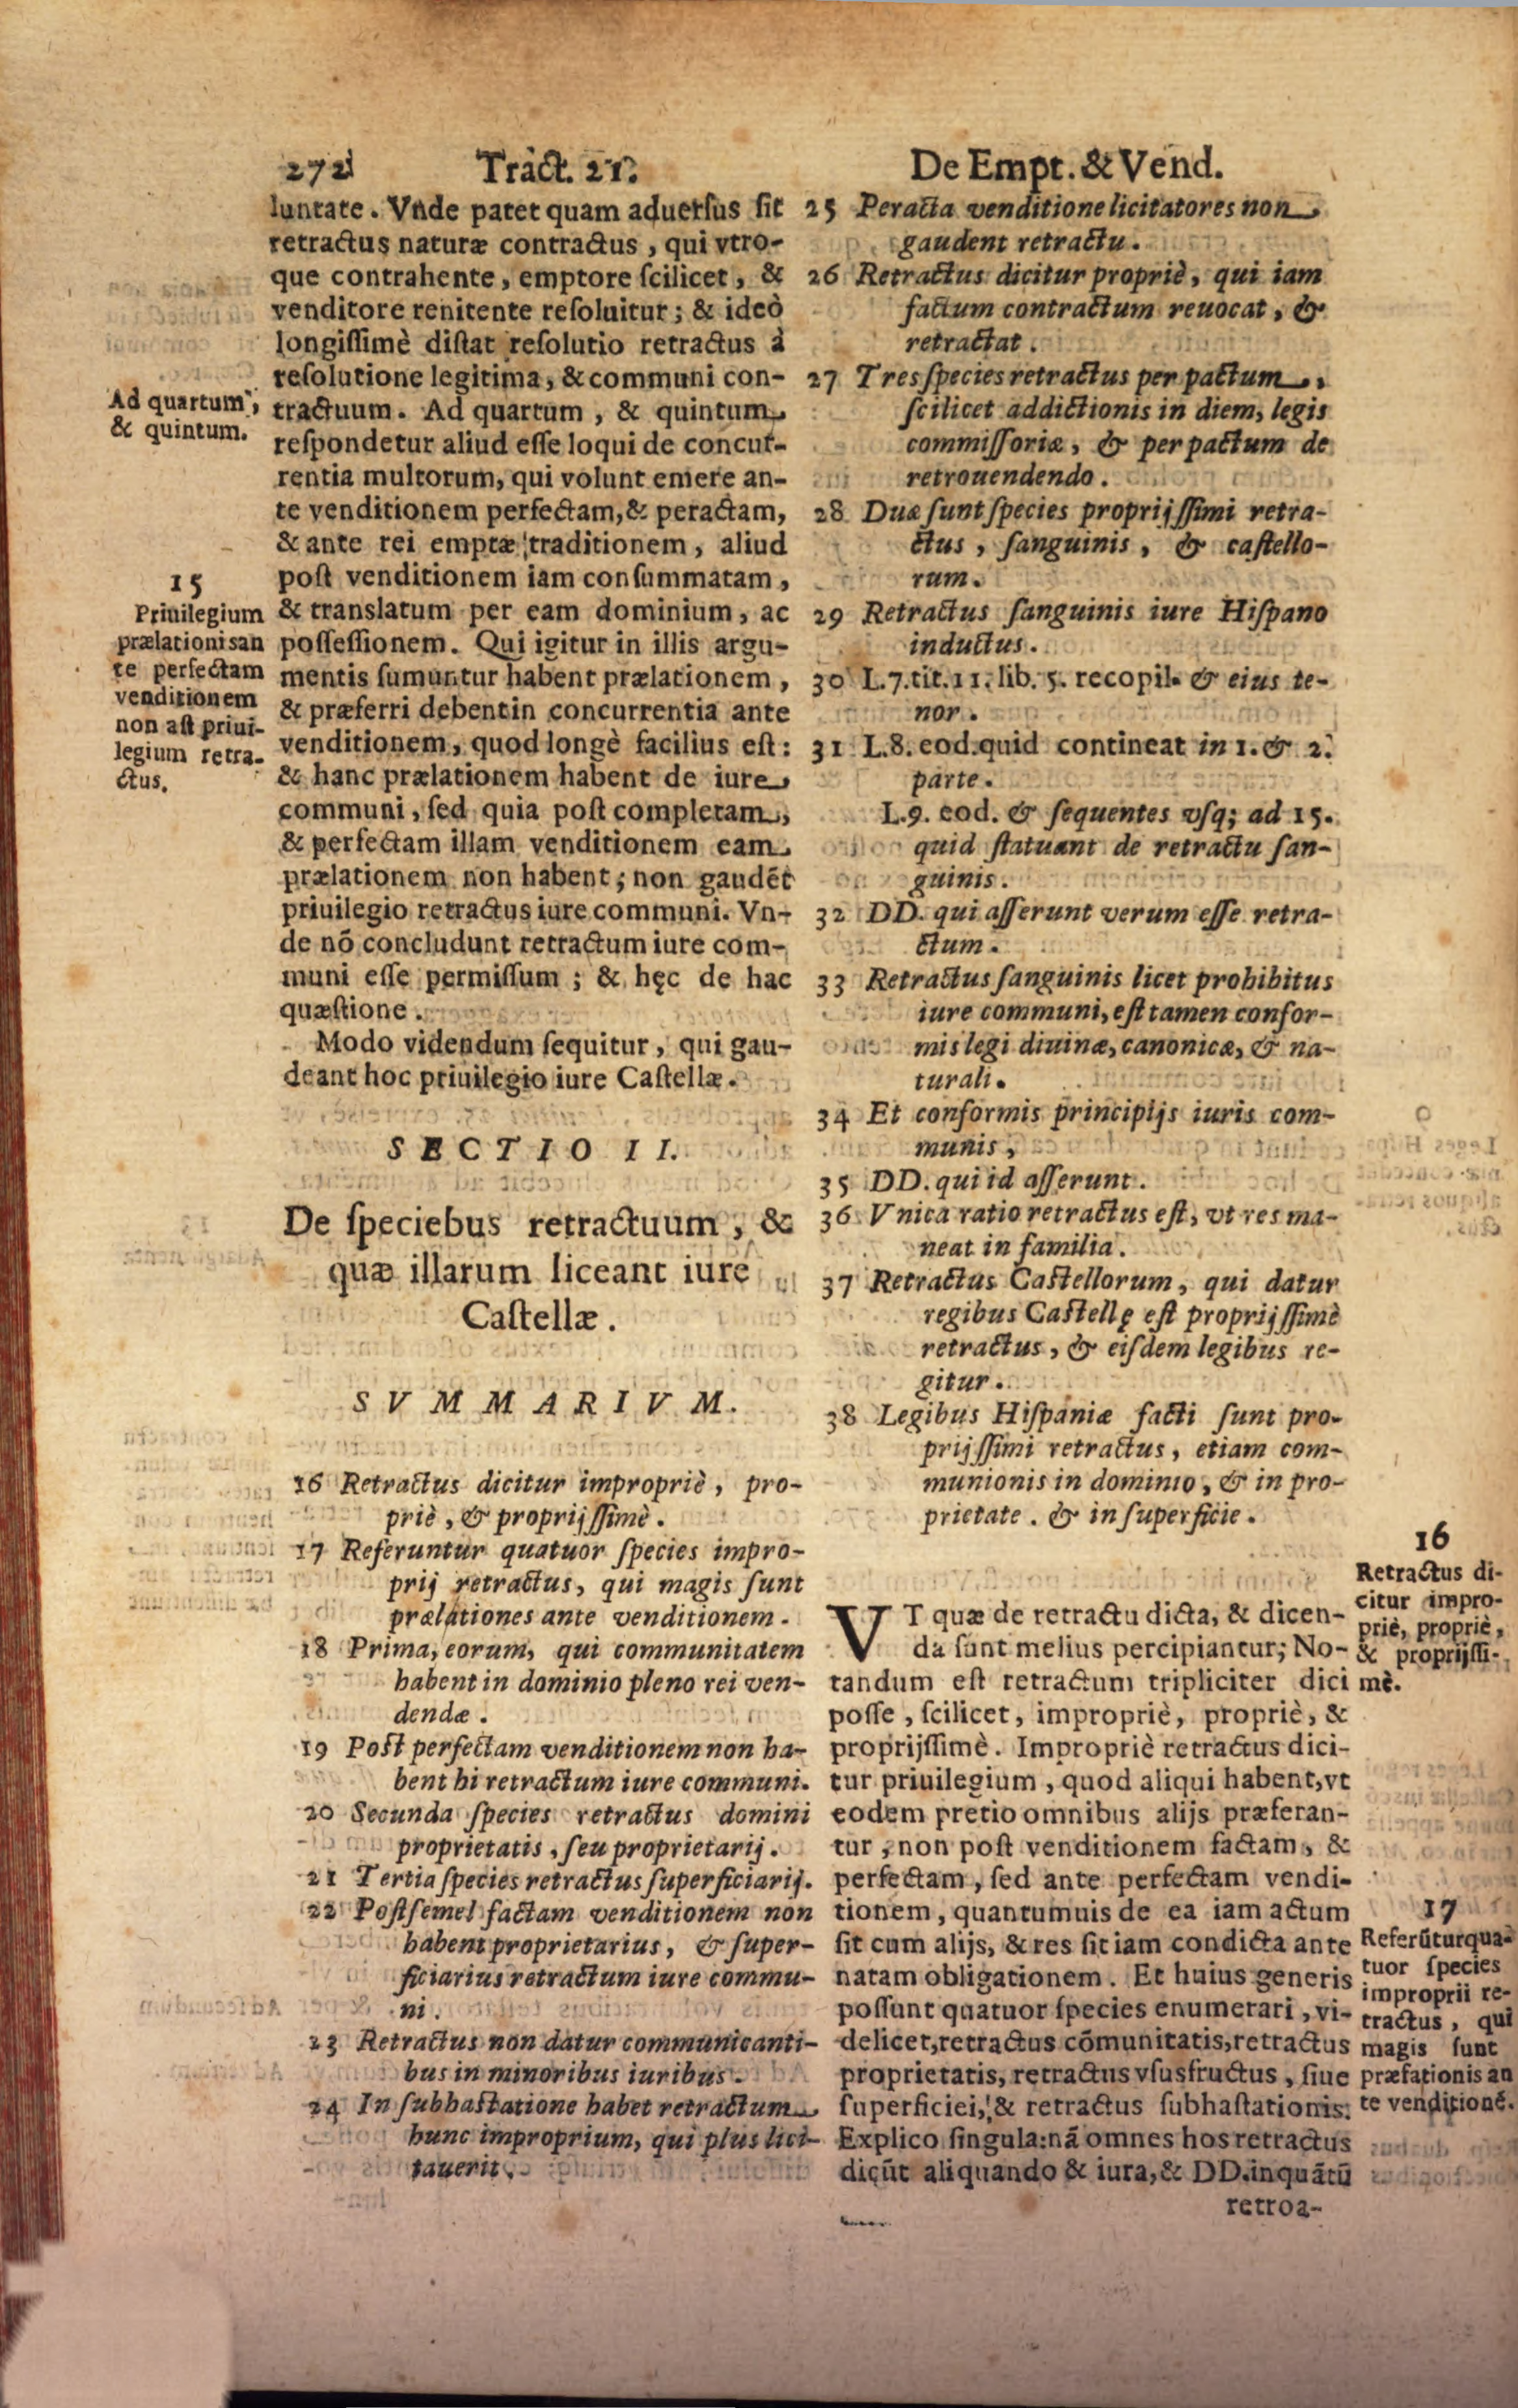 272 Tract. 21. De Empt. & Vend.
luntate. Vnde patet quam aduersus sit
retractus naturæ contractus, qui vtro-
que contrahente, emptore scilicet, &
venditore renitente resoluitur; & ideò
longissimè distat resolutio retractus à
resolutione legitima, & communi con-
tractuum. Ad quartum, & quintum
respondetur aliud esse loqui de concur-
rentia multorum, qui volunt emere an-
te venditionem perfectam, & peractam,
& ante rei emptæ traditionem, aliud
post venditionem iam consummatam,
& translatum per eam dominium, ac
possessionem. Qui igitur in illis argu-
mentis sumuntur habent prælationem,
& præferri debent in concurrentia ante
venditionem, quod longè facilius est:
& hanc prælationem habent de iure
communi, sed quia post completam,
& perfectam illam venditionem eam
prælationem non habent; non gaudẽt
priuilegio retractus iure communi. Vn-
de nõ concludunt retractum iure com-
muni esse permissum; & hęc de hac
quæstione.
Modo videndum sequitur, qui gau-
deant hoc priuilegio iure Castellæ.
Ad quartum,
& quintum.
15
Priuilegium
prælationis an
te perfectam
venditionem
non ast priui-
legium retra-
ctus.
SECTIO II.
De speciebus retractuum, &
quæ illarum liceant iure
Castellæ.
SVMMARIVM.
16 Retractus dicitur impropriè, pro-
priè, & proprijssimè.
17 Referuntur quatuor species impro-
prij retractus, qui magis sunt
prælationes ante venditionem.
18 Prima, eorum, qui communitatem
habent in dominio pleno rei ven-
dendæ.
19 Post perfectam venditionem non ha-
bent hi retractum iure communi.
20 Secunda species retractus domini
proprietatis, seu proprietarij.
21 Tertia species retractus superficiarij.
22 Post semel factam venditionem non
habent proprietarius, & super-
ficiarius retractum iure commu-
ni.
23 Retractus non datur communicanti-
bus in minoribus iuribus.
24 In subhastatione habet retractum
hunc improprium, qui plus lici-
tauerit.
25 Peracta venditione licitatores non
gaudent retractu.
26 Retractus dicitur propriè, qui iam
factum contractum reuocat, &
retractat.
27 Tres species retractus per pactum,
scilicet addictionis in diem, legis
commissoriæ, & per pactum de
retrouendendo.
28 Duæ sunt species proprijssimi retra-
ctus, sanguinis, & castello-
rum.
29 Retractus sanguinis iure Hispano
inductus.
30 L.7.tit.11.lib.5. recopil. & eius te-
nor.
31 L.8. eod. quid contineat in 1. & 2.
parte.
L.9. eod. & sequentes vsq; ad 15.
quid statuant de retractu san-
guinis.
32 DD. qui asserunt verum esse retra-
ctum.
33 Retractus sanguinis licet prohibitus
iure communi, est tamen confor-
mis legi diuinæ, canonicæ, & na-
turali.
34 Et conformis principijs iuris com-
munis,
35 DD. qui id asserunt.
36 Vnica ratio retractus est, vt res ma-
neat in familia.
37 Retractus Castellorum, qui datur
regibus Castellę est proprijssimè
retractus, & eisdem legibus re-
gitur.
38 Legibus Hispaniæ facti sunt pro-
prijssimi retractus, etiam com-
munionis in dominio, & in pro-
prietate. & in superficie.
VT quæ de retractu dicta, & dicen-
da sunt melius percipiantur; No-
tandum est retractum tripliciter dici
posse, scilicet, impropriè, propriè, &
proprijssimè. Impropriè retractus dici-
tur priuilegium, quod aliqui habent, vt
eodem pretio omnibus alijs præferan-
tur, non post venditionem factam, &
perfectam, sed ante perfectam vendi-
tionem, quantumuis de ea iam actum
sit cum alijs, & res sit iam condicta ante
natam obligationem. Et huius generis
possunt quatuor species enumerari, vi-
delicet, retractus cõmunitatis, retractus
proprietatis, retractus vsusfructus, siue
superficiei, & retractus subhastationis.
Explico singula: nã omnes hos retractus
dicũt aliquando & iura, & DD. inquãtũ
retroa-
16
Retractus di-
citur impro-
priè, propriè,
& proprijssi-
mè.
17
Referũtur qua-
tuor species
improprii re-
tractus, qui
magis sunt
præfationis an
te venditionẽ.